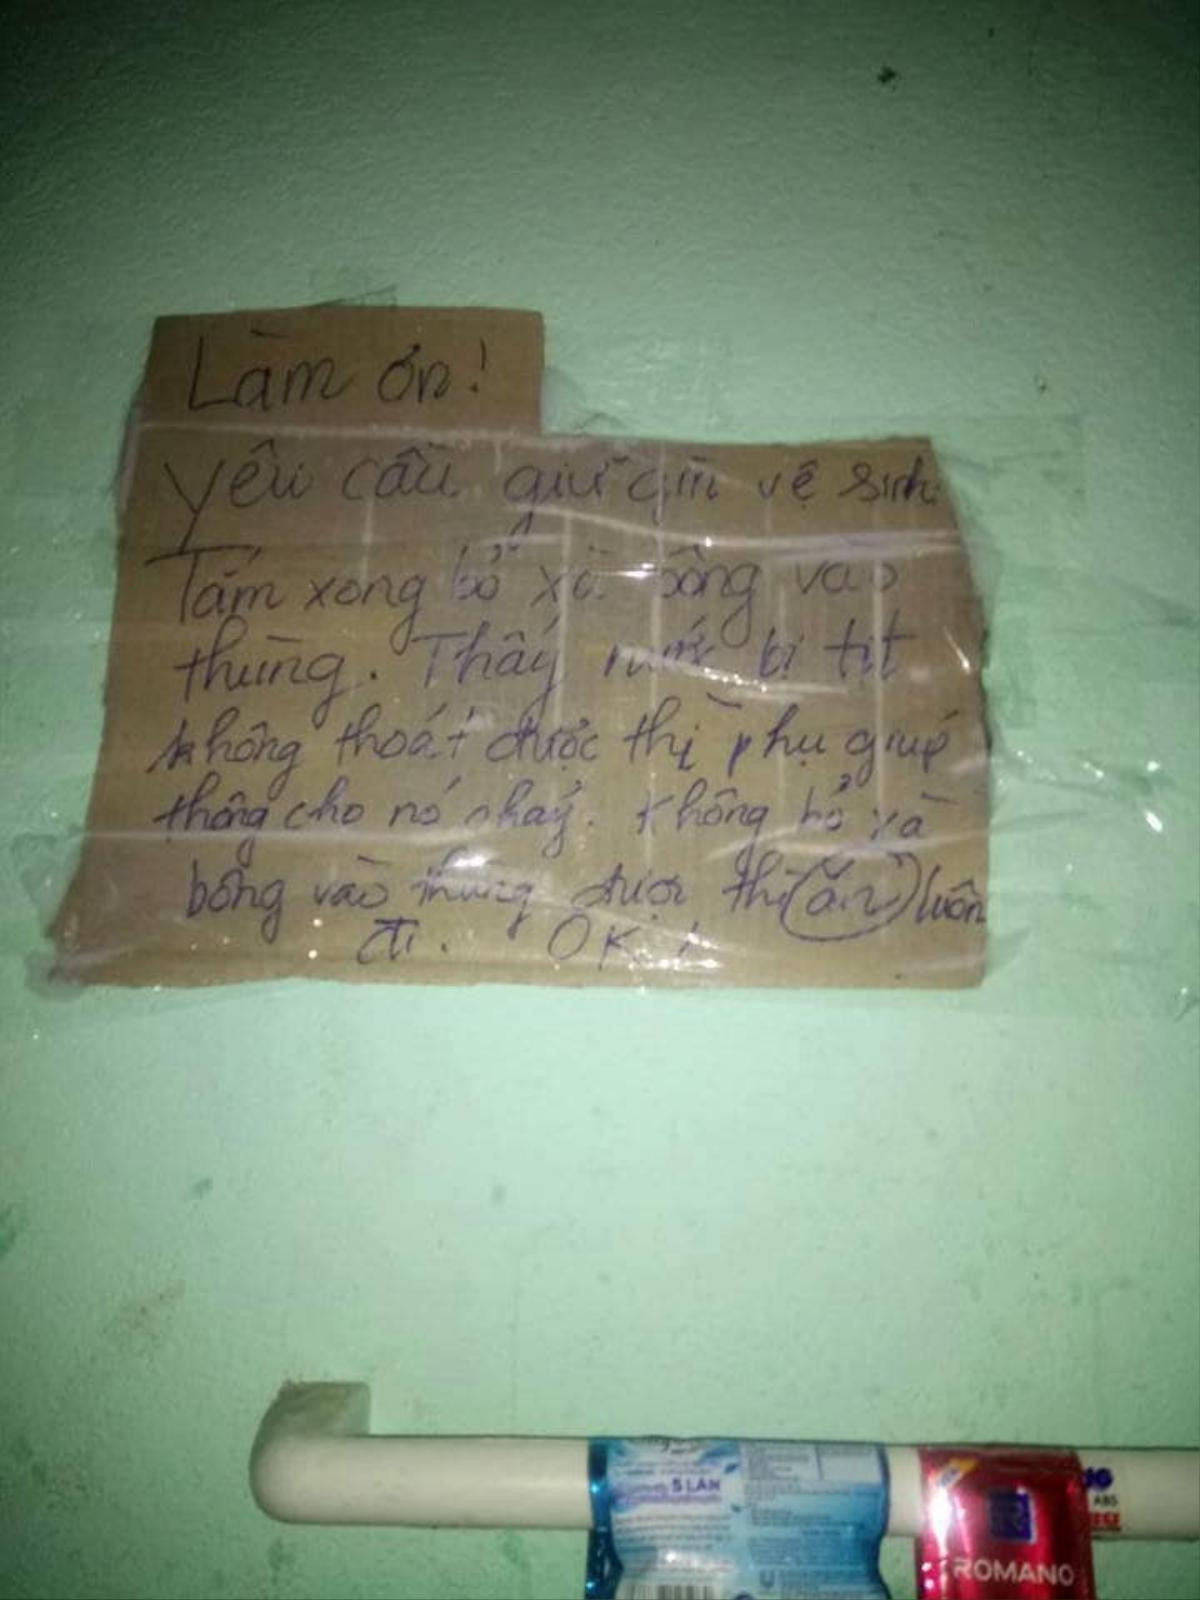 Làm ơn!
Yêu cầu giữ gìn vệ sinh.
Tắm xong bỏ xà bông vào
thùng. Thấy nước bị tịt
không thoát được thì phụ giúp
thông cho nó nhảy. Không bỏ xà
bông vào thùng được thì ăn luôn
đi. OK!
5 LẦN
ABS
ROMANO